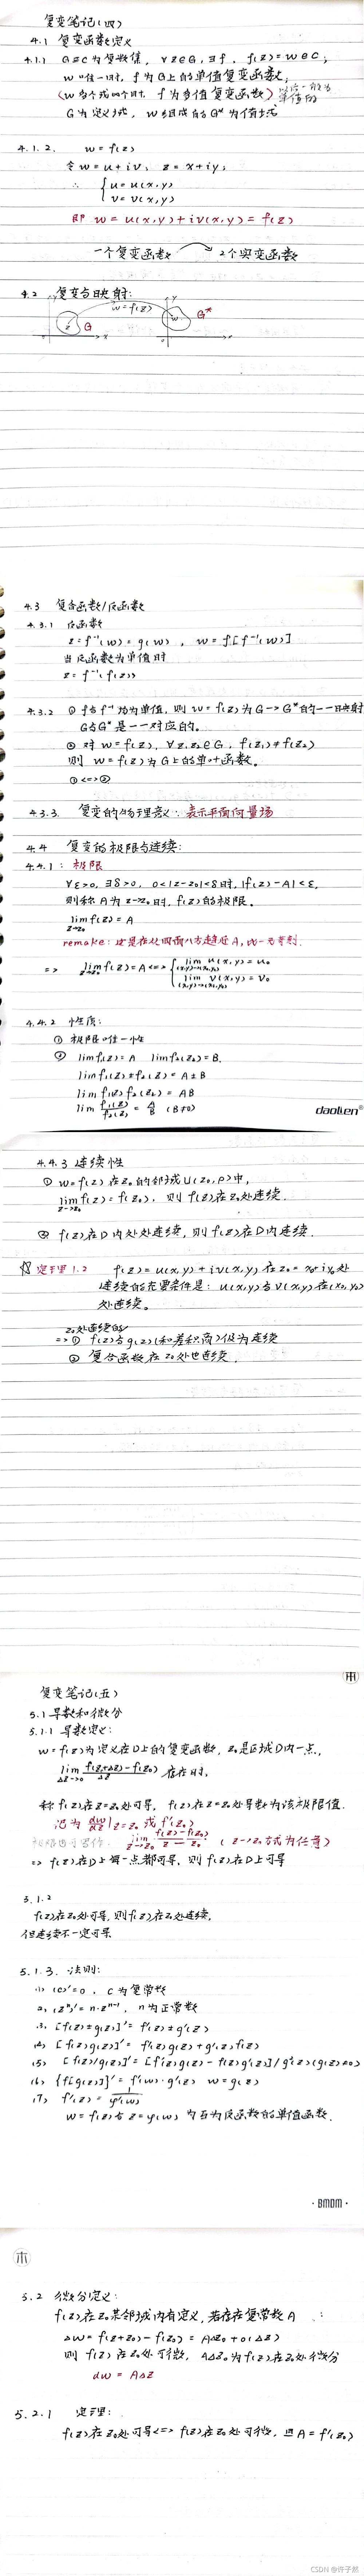 复变笔记(四)
4.1 复变函数定义
4.1.1 G∈C为复数值, ∀z∈G, ∃f, f(z)=w∈C;
w唯一时, f为G上的单值复变函数;
(w多个或两个时, f为多值复变函数)
G为定义域, w组成的G*为值域
4.1.2. w=f(z)
令w=u+iv; z=x+iy;
∴ { u=u(x,y)
v=v(x,y)
即 w=u(x,y)+iv(x,y)=f(z)
一个复变函数 → 2个实变函数
4.2 复变与映射:
y w=f(z) y
z G w G*
0 x 0 x
4.3 复合函数/反函数
4.3.1 反函数
z=f⁻¹(w)=g(w), w=f[f⁻¹(w)]
当反函数为单值时
z=f⁻¹(f(z))
4.3.2 ① f与f⁻¹均为单值, 则w=f(z)为G→G*的一一映射
G与G*是一一对应的。
② 对w=f(z), ∀z₁z₂∈G, f(z₁)≠f(z₂)
则 w=f(z)为G上的单叶函数。
①<=>②
4.3.3. 复变的物理意义: 表示平面向量场
4.4 复变的极限与连续:
4.4.1: 极限
∀ε>0, ∃δ>0, 0<|z-z₀|<δ时, |f(z)-A|<ε,
则称A为z→z₀时, f(z)的极限。
lim f(z)=A
z→z₀
remake: 这是在从四面八方趋近A, 比一元苛刻.
=> lim f(z)=A <=> { lim u(x,y)=u₀
z→z₀ (x,y)→(x₀,y₀)
lim v(x,y)=v₀
(x,y)→(x₀,y₀)
4.4.2 性质:
① 极限唯一性
② limf₁(z)=A limf₂(z₀)=B.
limf₁(z)±f₂(z)=A±B
limf₁(z)f₂(z₀)=AB
lim f₁(z)/f₂(z) = A/B (B≠0)
daolen
4.4.3 连续性
① w=f(z)在z₀的邻域U(z₀,ρ)中,
lim f(z)=f(z₀), 则f(z)在z₀处连续.
z→z₀
② f(z)在D内处处连续, 则f(z)在D内连续.
☆ 定理1.2 f(z)=u(x,y)+iv(x,y)在z₀=x₀+iy₀处
连续的充要条件是: u(x,y)与v(x,y)在(x₀,y₀)
处连续。
z₀处连续的
=> ① f(z)与g(z)(和差积商)仍为连续
② 复合函数在z₀处也连续.
复变笔记(五)
5.1 导数和微分
5.1.1 导数定义:
w=f(z)为定义在D上的复变函数, z₀是区域D内一点,
lim f(z₀+Δz)-f(z₀)/Δz 存在时,
Δz→0
称f(z)在z=z₀处可导, f(z)在z=z₀处导数为该极限值.
记为 dw/dz|z=z₀ 或f'(z₀)
极限也可写作: lim f(z)-f(z₀)/z-z₀ (z→z₀方式为任意)
z→z₀
=> f(z)在D上每一点都可导, 则f(z)在D上可导
5.1.2
f(z)在z₀处可导, 则f(z)在z₀处连续,
但连续不一定可导
5.1.3. 法则:
(1) (c)'=0, c为复常数
(2) (zⁿ)'=n·zⁿ⁻¹, n为正常数
(3) [f(z)±g(z)]'=f'(z)±g'(z)
(4) [f(z)g(z)]'=f'(z)g(z)+g'(z)f(z)
(5) [f(z)/g(z)]'=[f'(z)g(z)-f(z)g'(z)]/g²(z) (g(z)≠0)
(6) {f[g(z)]}'=f'(w)·g'(z) w=g(z)
(7) f'(z)=1/φ'(w)
w=f(z)与z=φ(w)为互为反函数的单值函数.
·BMDM·
5.2 微分定义:
f(z)在z₀某邻域内有定义, 若存在复常数A:
Δw=f(z+z₀)-f(z₀)=AΔz₀+o(Δz)
则f(z)在z₀处可微, AΔz₀为f(z)在z₀处微分
dw=AΔz
5.2.1 定理:
f(z)在z₀处可导<=>f(z)在z₀处可微, 且A=f'(z₀)
CSDN @许子然